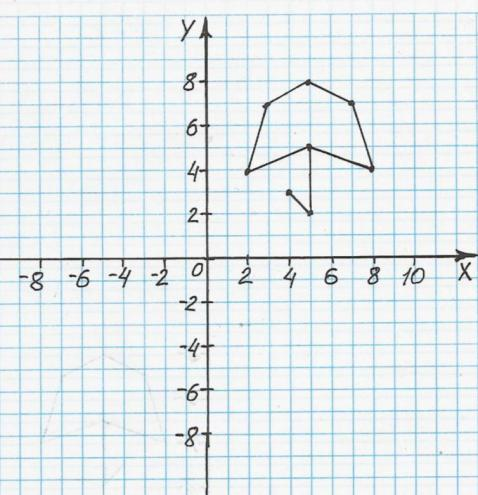 y
8
6
4
2
-8 -6 -4 -2 0 2 4 6 8 10 X
-2
-4
-6
-8